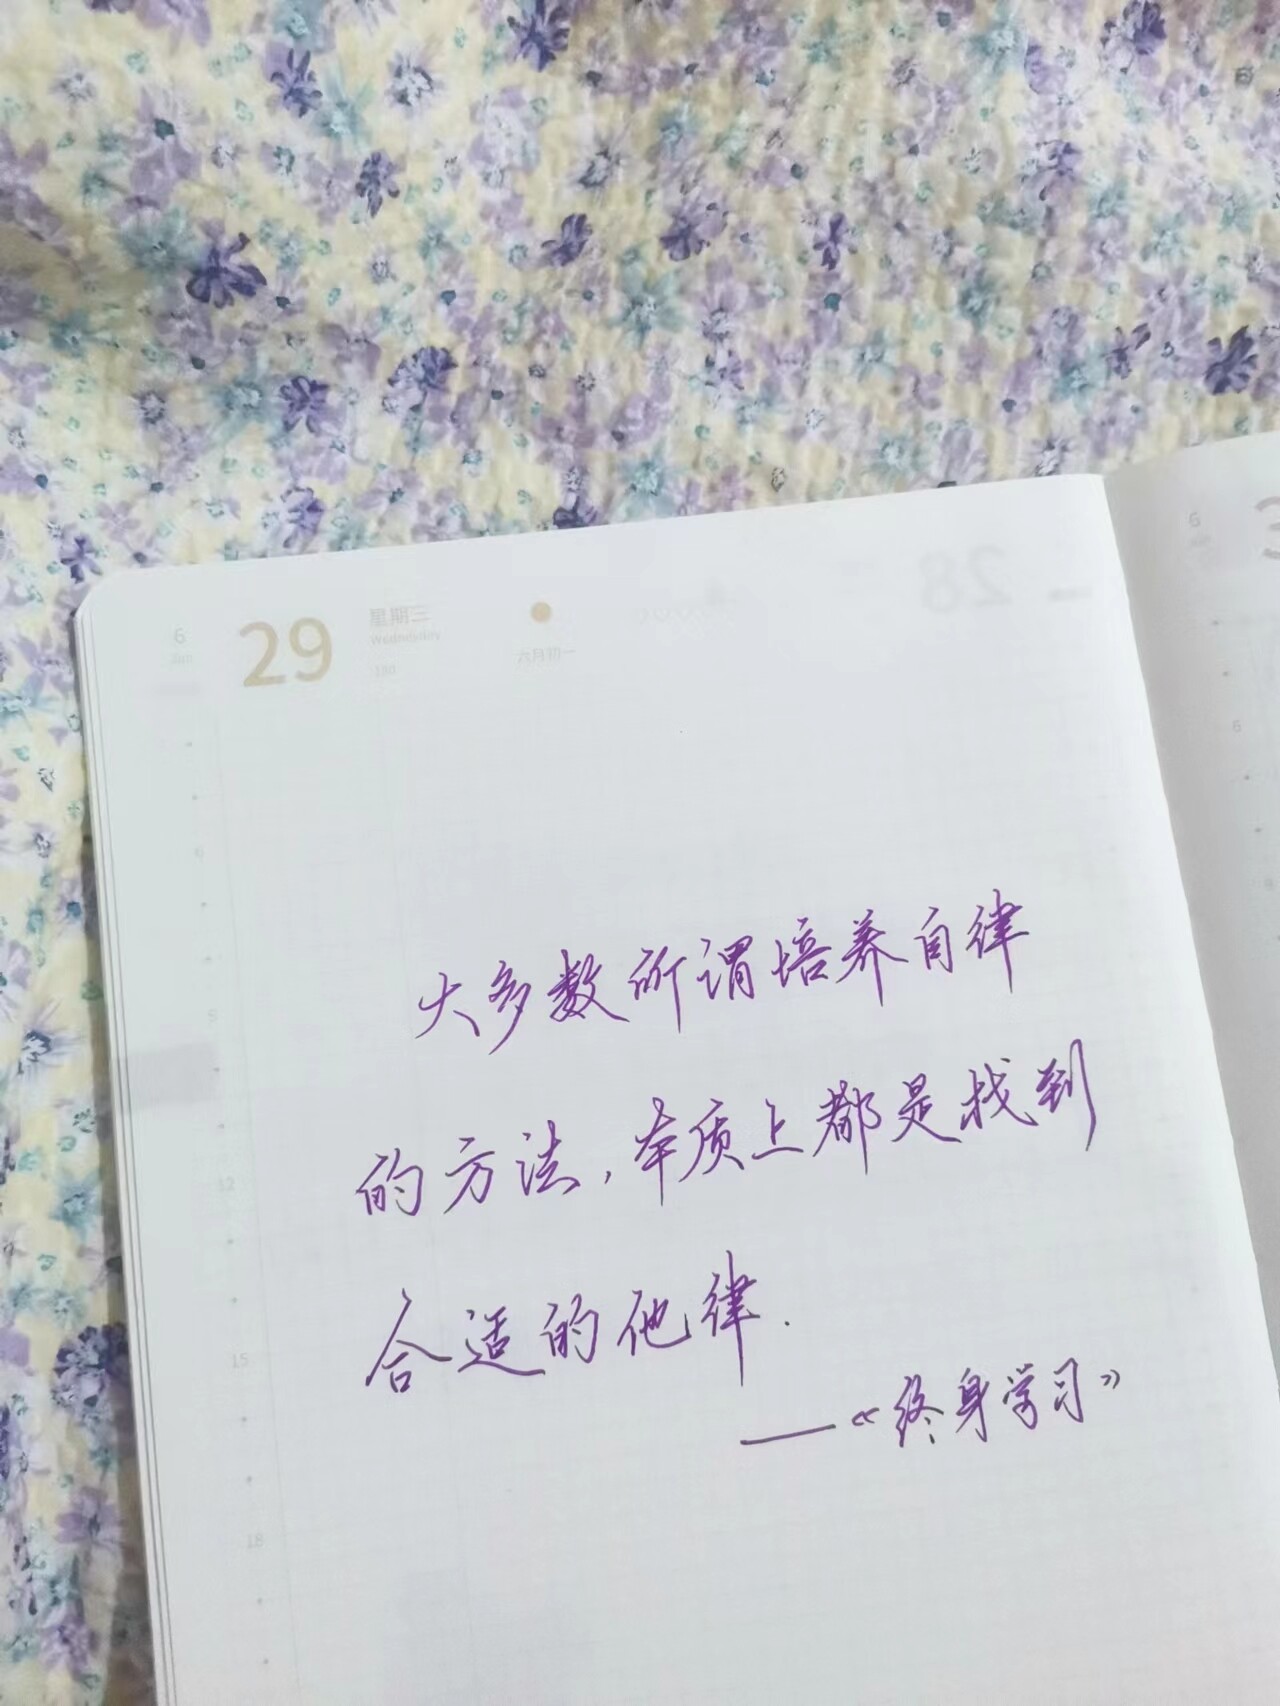 6
Jun
29
星期三
Wednesday
180
六月初一
28
6
大多数所谓培养自律
的方法，本质上都是找到
合适的他律.
——《终身学习》
6
9
12
15
18
6